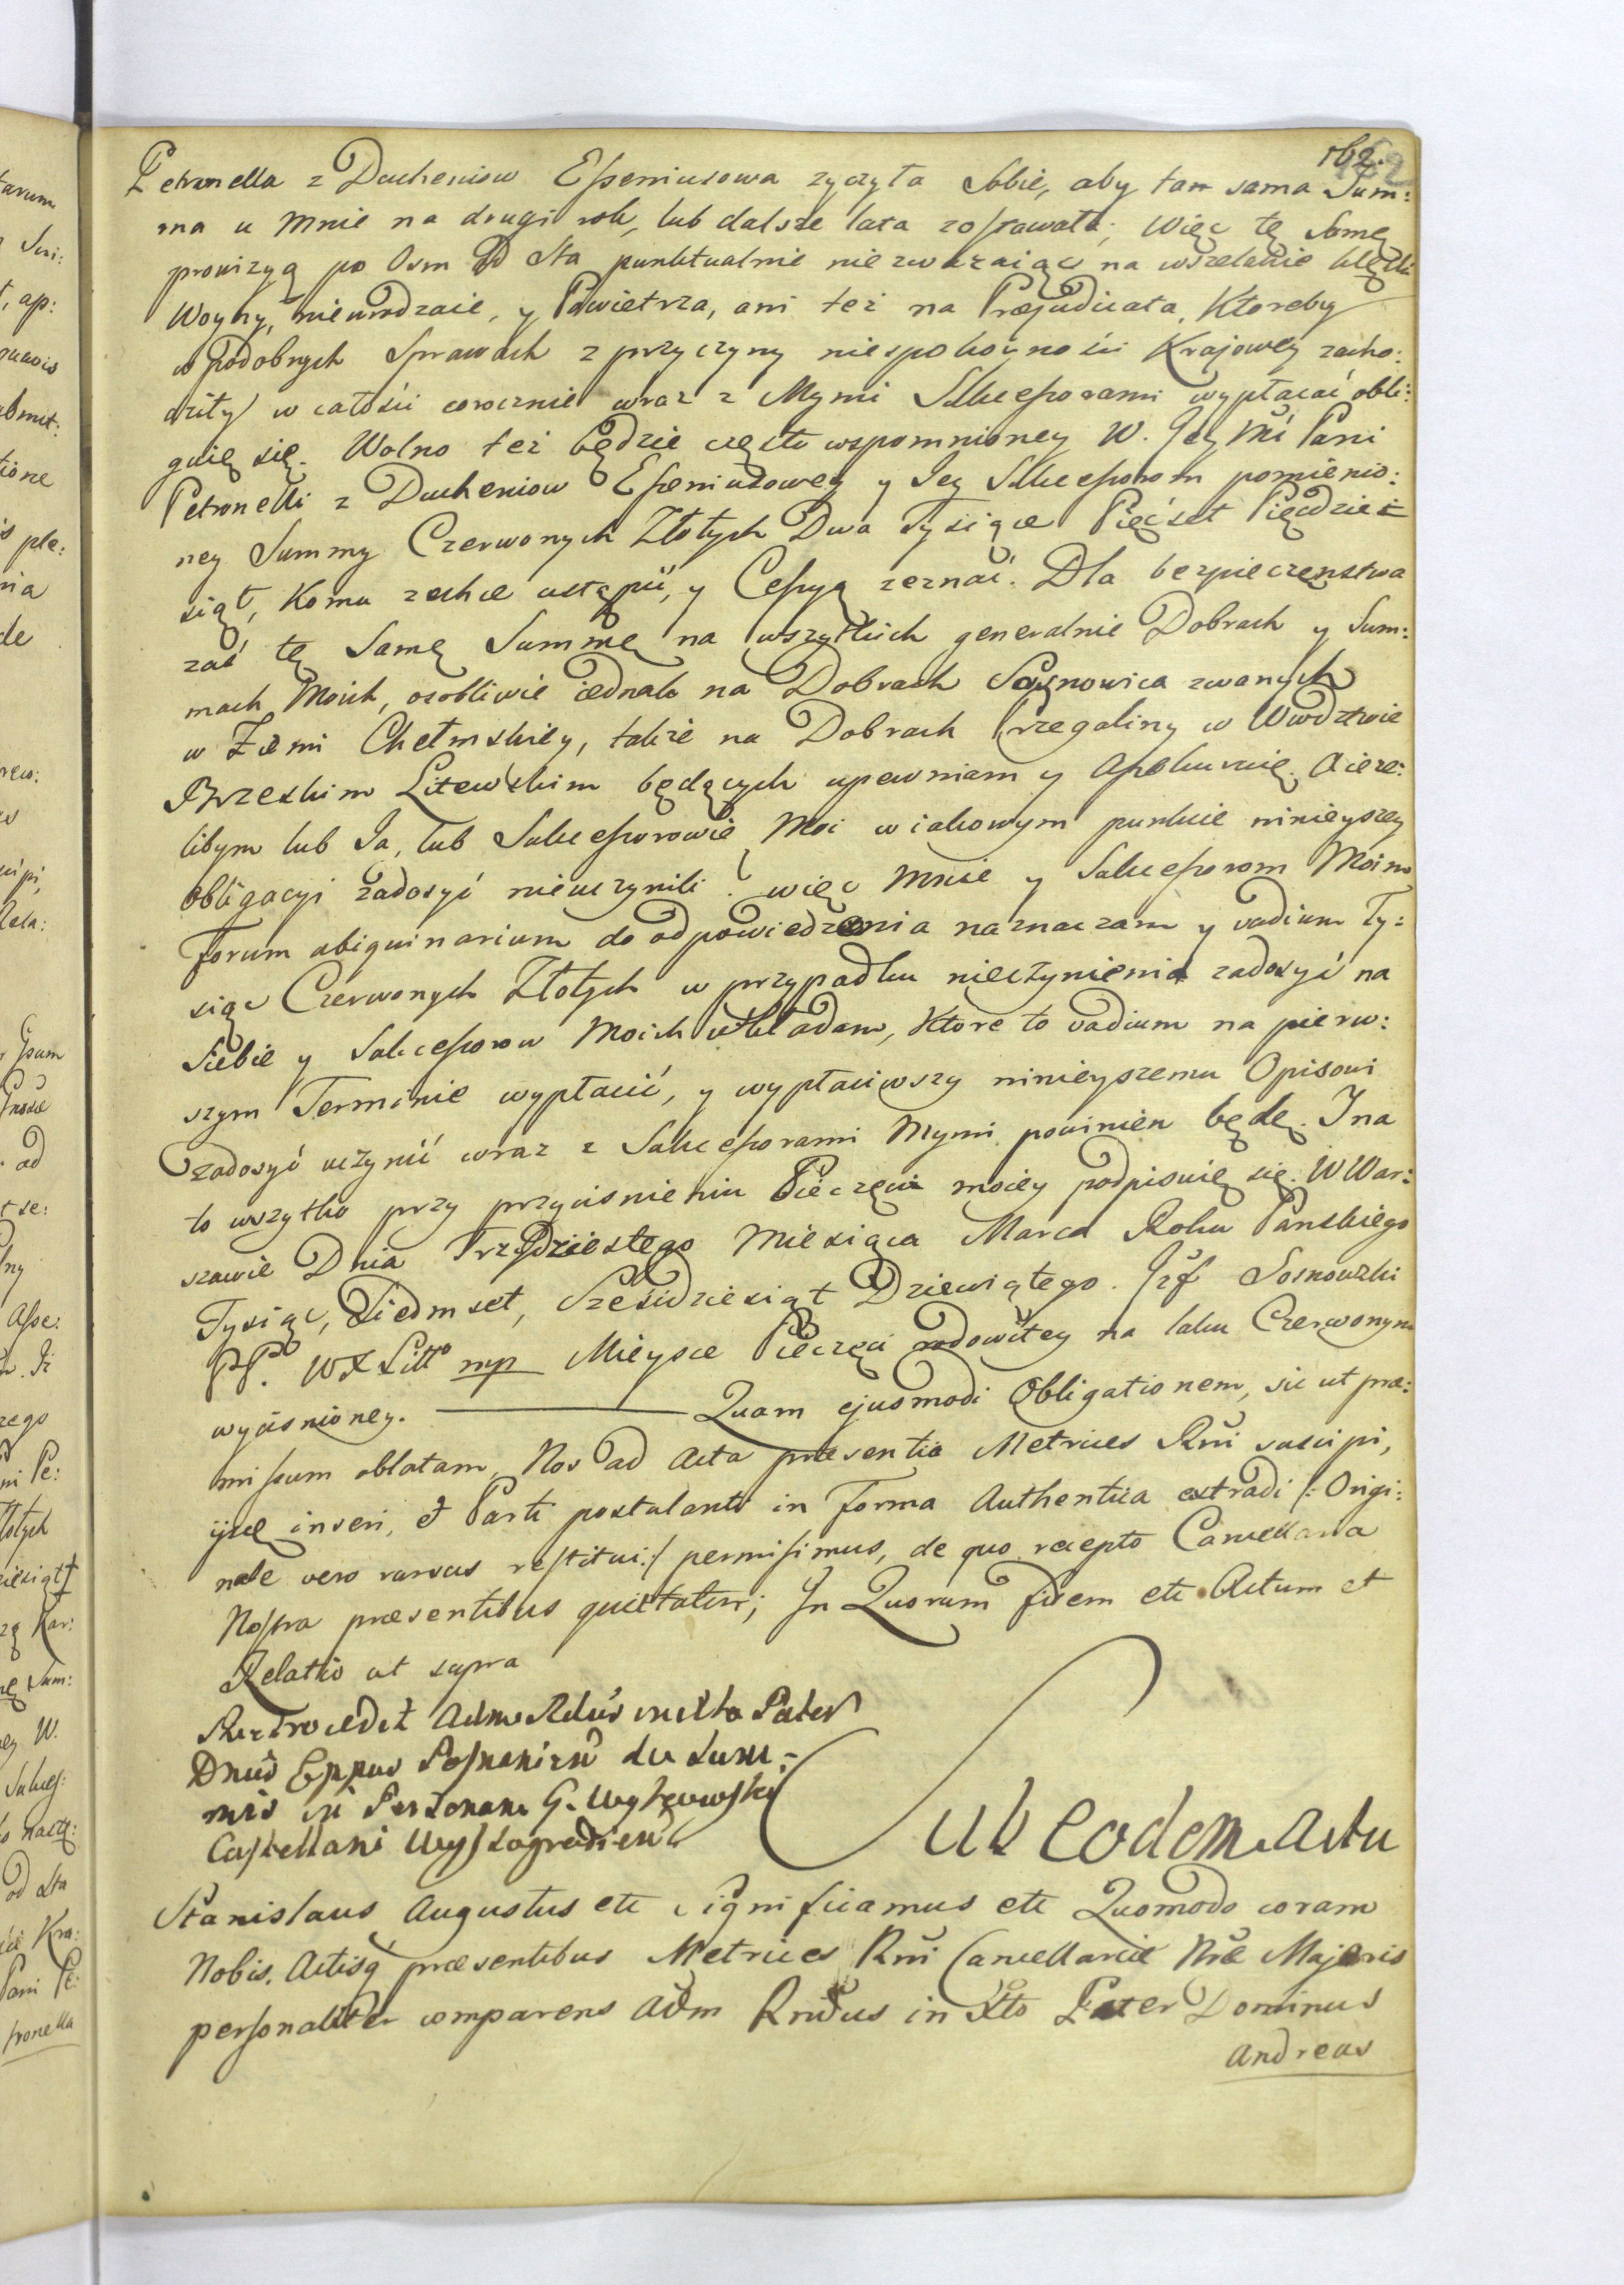 162.
Petronella z Ducheniow Esseniusowa zyczyła Sobie, aby tan sama Sum:
ma u Mnie na drugi rok, lub dalsze lata zostawała; Więc tę Samę
prowizyą po Osm od Sta punktualnie niezwazaiąc na wszelakie klęski
Woyny, nieurodzaie, y Powietrza, ani też na Præjudicata, Ktoreby
w podobnych Sprawach z przyczyny niespokoyności Krajowey zacho:
dziły w całości corocznie wraz z Mymi Sukcessorami wypłacać obli:
guię się. Wolno też będzie często wspomnioney W. Jey Mći Pani
Petronelli z Ducheniow Esseniusowey y Jey Sukcessorom pomienio:
ney Summy Czerwonych Złotych Dwa Tysiące Pięćset Pięćdzie
siąt, Komu zechce ustąpić, y Cessyą zeznać. Dla bezpieczenstwa
zaś tę Samę Summę na wszytkich generalnie Dobrach y Sum:
mach Moich, osobliwie iednak na Dobrach Sosnowica zwanych
w Ziemi Chełmskiey, także na Dobrach Przegaliny w Wwdztwie
Brzeskim Litewskim będących upewniam y Assekuruię. A ieże:
libym lub Ja, lub Sukcessorowie Moi w iakowym punkcie ninieyszey
obligacyi zadosyć nieuczynili. więc Mnie y Sukcessorom Moim
Forum ubiquinarium do odpowiedzenia naznaczam y vadium Ty:
siąc Czerwonych Złotych w przypadku nieczynienia zadosyć na
Siebie y Sukcessorow Moich układam, Ktore to vadium na pierw:
szym Terminie wypłacić, y wypłaciwszy ninieyszemu Opisowi
zadosyć uczynić wraz z Sukcessorami Mymi powinien będę. J na
to wszytko przy przyciśnieniu Pieczęci moiey podpisuię się. W War:
szawie Dnia Trzydziestego Miesiąca Marca Roku Panskiego
Tysiąc, Siedmset, Sześćdziesiąt Dziewiątego. Jozf Sosnowski
PP. WX Litt mp Mieysce Pieczęci rodowitey na laku Czerwonym
wyciśnioney. Quam ejusmodi Obligationem, sic ut præ:
missum oblatam, Nos ad Acta præsentia Metrices Rñi suscipi,
ijsq inseri, et Parti postulanti in Forma Authentica extradi /: Origi:
nale vero rursus restitui :/ permisimus, de quo recepto Cancellaria
Nostra præsentibus quietatur; Jn Quorum fidem etc Actum et
Relatio ut supra
Dnus Eppus Posnanien de Sum:
mis in Personam G.
Castellani Wyssogrodien
Sub eodem Actu
Stanislaus Augustus etc Significamus etc Quomodo coram
Nobis, Actisq præsentibus Metrices Rñi Cancellariæ Nræ Majoris
personaliter comparens Adm Rndus in Xto Pater Dominus
Andreas